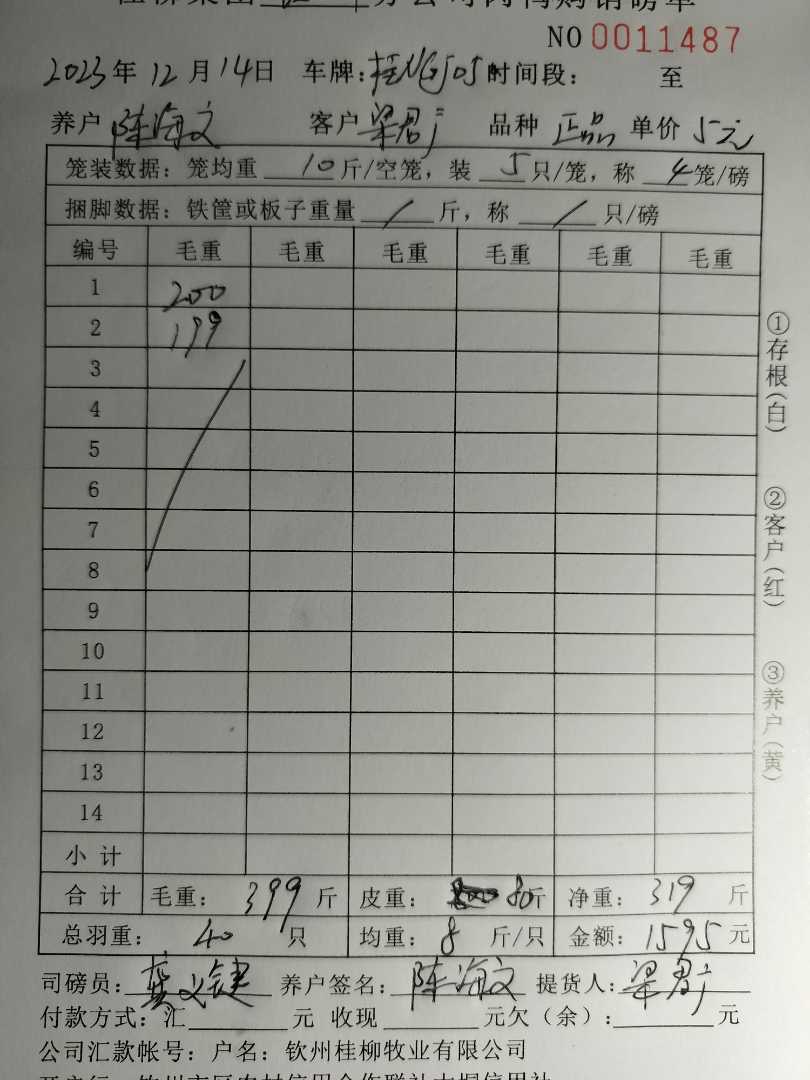 NO 0011487
2023年12月14日 车牌:桂NGJ05 时间段: 至
养户 陈海文 客户 梁君广 品种 正品 单价 5元
笼装数据: 笼均重 10 斤/空笼, 装 5 只/笼, 称 4 笼/磅
捆脚数据: 铁筐或板子重量 / 斤, 称 / 只/磅
编号 毛重 毛重 毛重 毛重 毛重 毛重
1 200
2 199
3
4
5
6
7
8
9
10
11
12
13
14
小计
合计 毛重: 399 斤 皮重: 80斤 净重: 319 斤
总羽重: 40 只 均重: 8 斤/只 金额: 1595元
司磅员: 养户签名: 陈海文 提货人: 梁君广
付款方式: 汇 元 收现 元欠(余): 元
公司汇款帐号: 户名: 钦州桂柳牧业有限公司
①存根(白)
②客户(红)
③养户(黄)